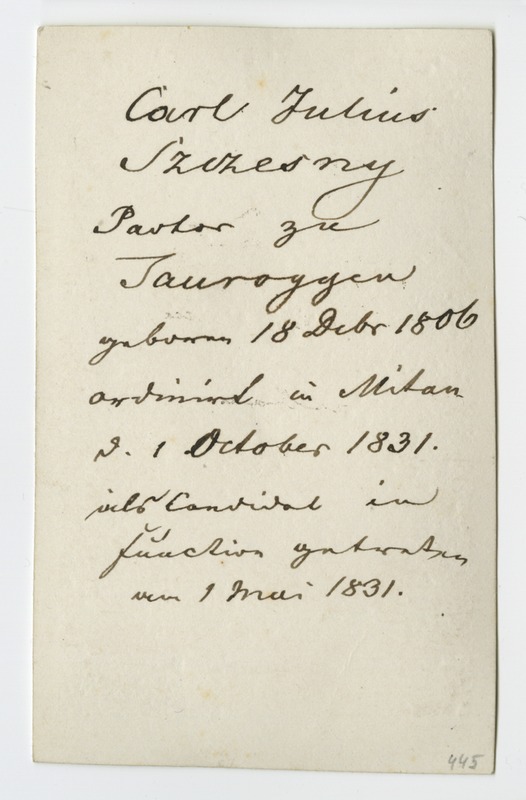 Carl Julius
Szczesny
Pastor zu
Tauroggen
geboren 18 Debr 1806
ordinirt in Mitau
d. 1 October 1831.
als Candidat in
function getreten
am 1 Mai 1831.
445